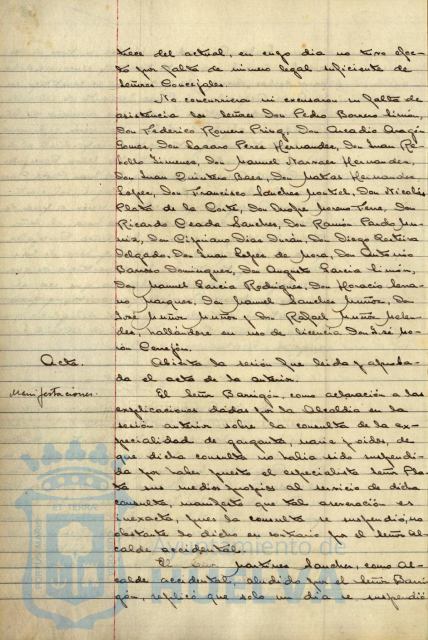 trece del actual, en cuyo dia no tuvo efec-
to por falta de número legal suficiente de
Señores Concejales.
No concurrieron ni excusaron su falta de
asistencia los Señores Don Pedro Borrero Limón,
Don Federico Romero Don Arcadio Aragón
Gomez, Don Lazaro Perez Hernandez, Don Juan Re-
bollo Jimenez, Don Manuel Narvaez Hernandez,
Don Juan Quintero Baez, Don Matias Hernandez
Lopez, Don Francisco Sanchez Don Nicolás
Plata de la Corte, Don Onofre Moreno Don
Ricardo Ceada Sanchez, Don Ramón Pardo Mu-
ñiz, Don Cipriano Diaz Durán, Don Diego
Delgado, Don Juan Lopez de Mora, Don Antonio
Barroso Dominguez, Don Augusto Garcia Limón,
Don Manuel Garcia Rodriguez, Don Horacio
Marquez, Don Manuel Sanchez Muñoz, Don
José Muñoz Muñoz y Don Rafael Muñoz
hallándose en uso de licencia Don José
Cerrejón.
Acta. Abierta la sesión fue leida y aproba-
da el acta de la anterior.
Manifestaciones. El Señor Barrigón, como aclaración a las
explicaciones dadas por la Alcaldia en la
sesión anterior sobre la consulta de la es-
pecialidad de garganta, nariz y oidos, de
que dicha consulta no habia sido suspendi-
da por haber puesto el especialista Señor Pla-
ta sus medios propios al servicio de dicha
consulta, manifestó que tal aseveración es
inexacta, pues la consulta se suspendió, no
obstante lo dicho en contrario por el Señor Al-
calde accidental.
El Martinez Sanchez, como Al-
calde accidental, aludido por el Señor Barri-
gón, replicó que solo un dia se suspendió
Ayuntamiento de
HUELVA